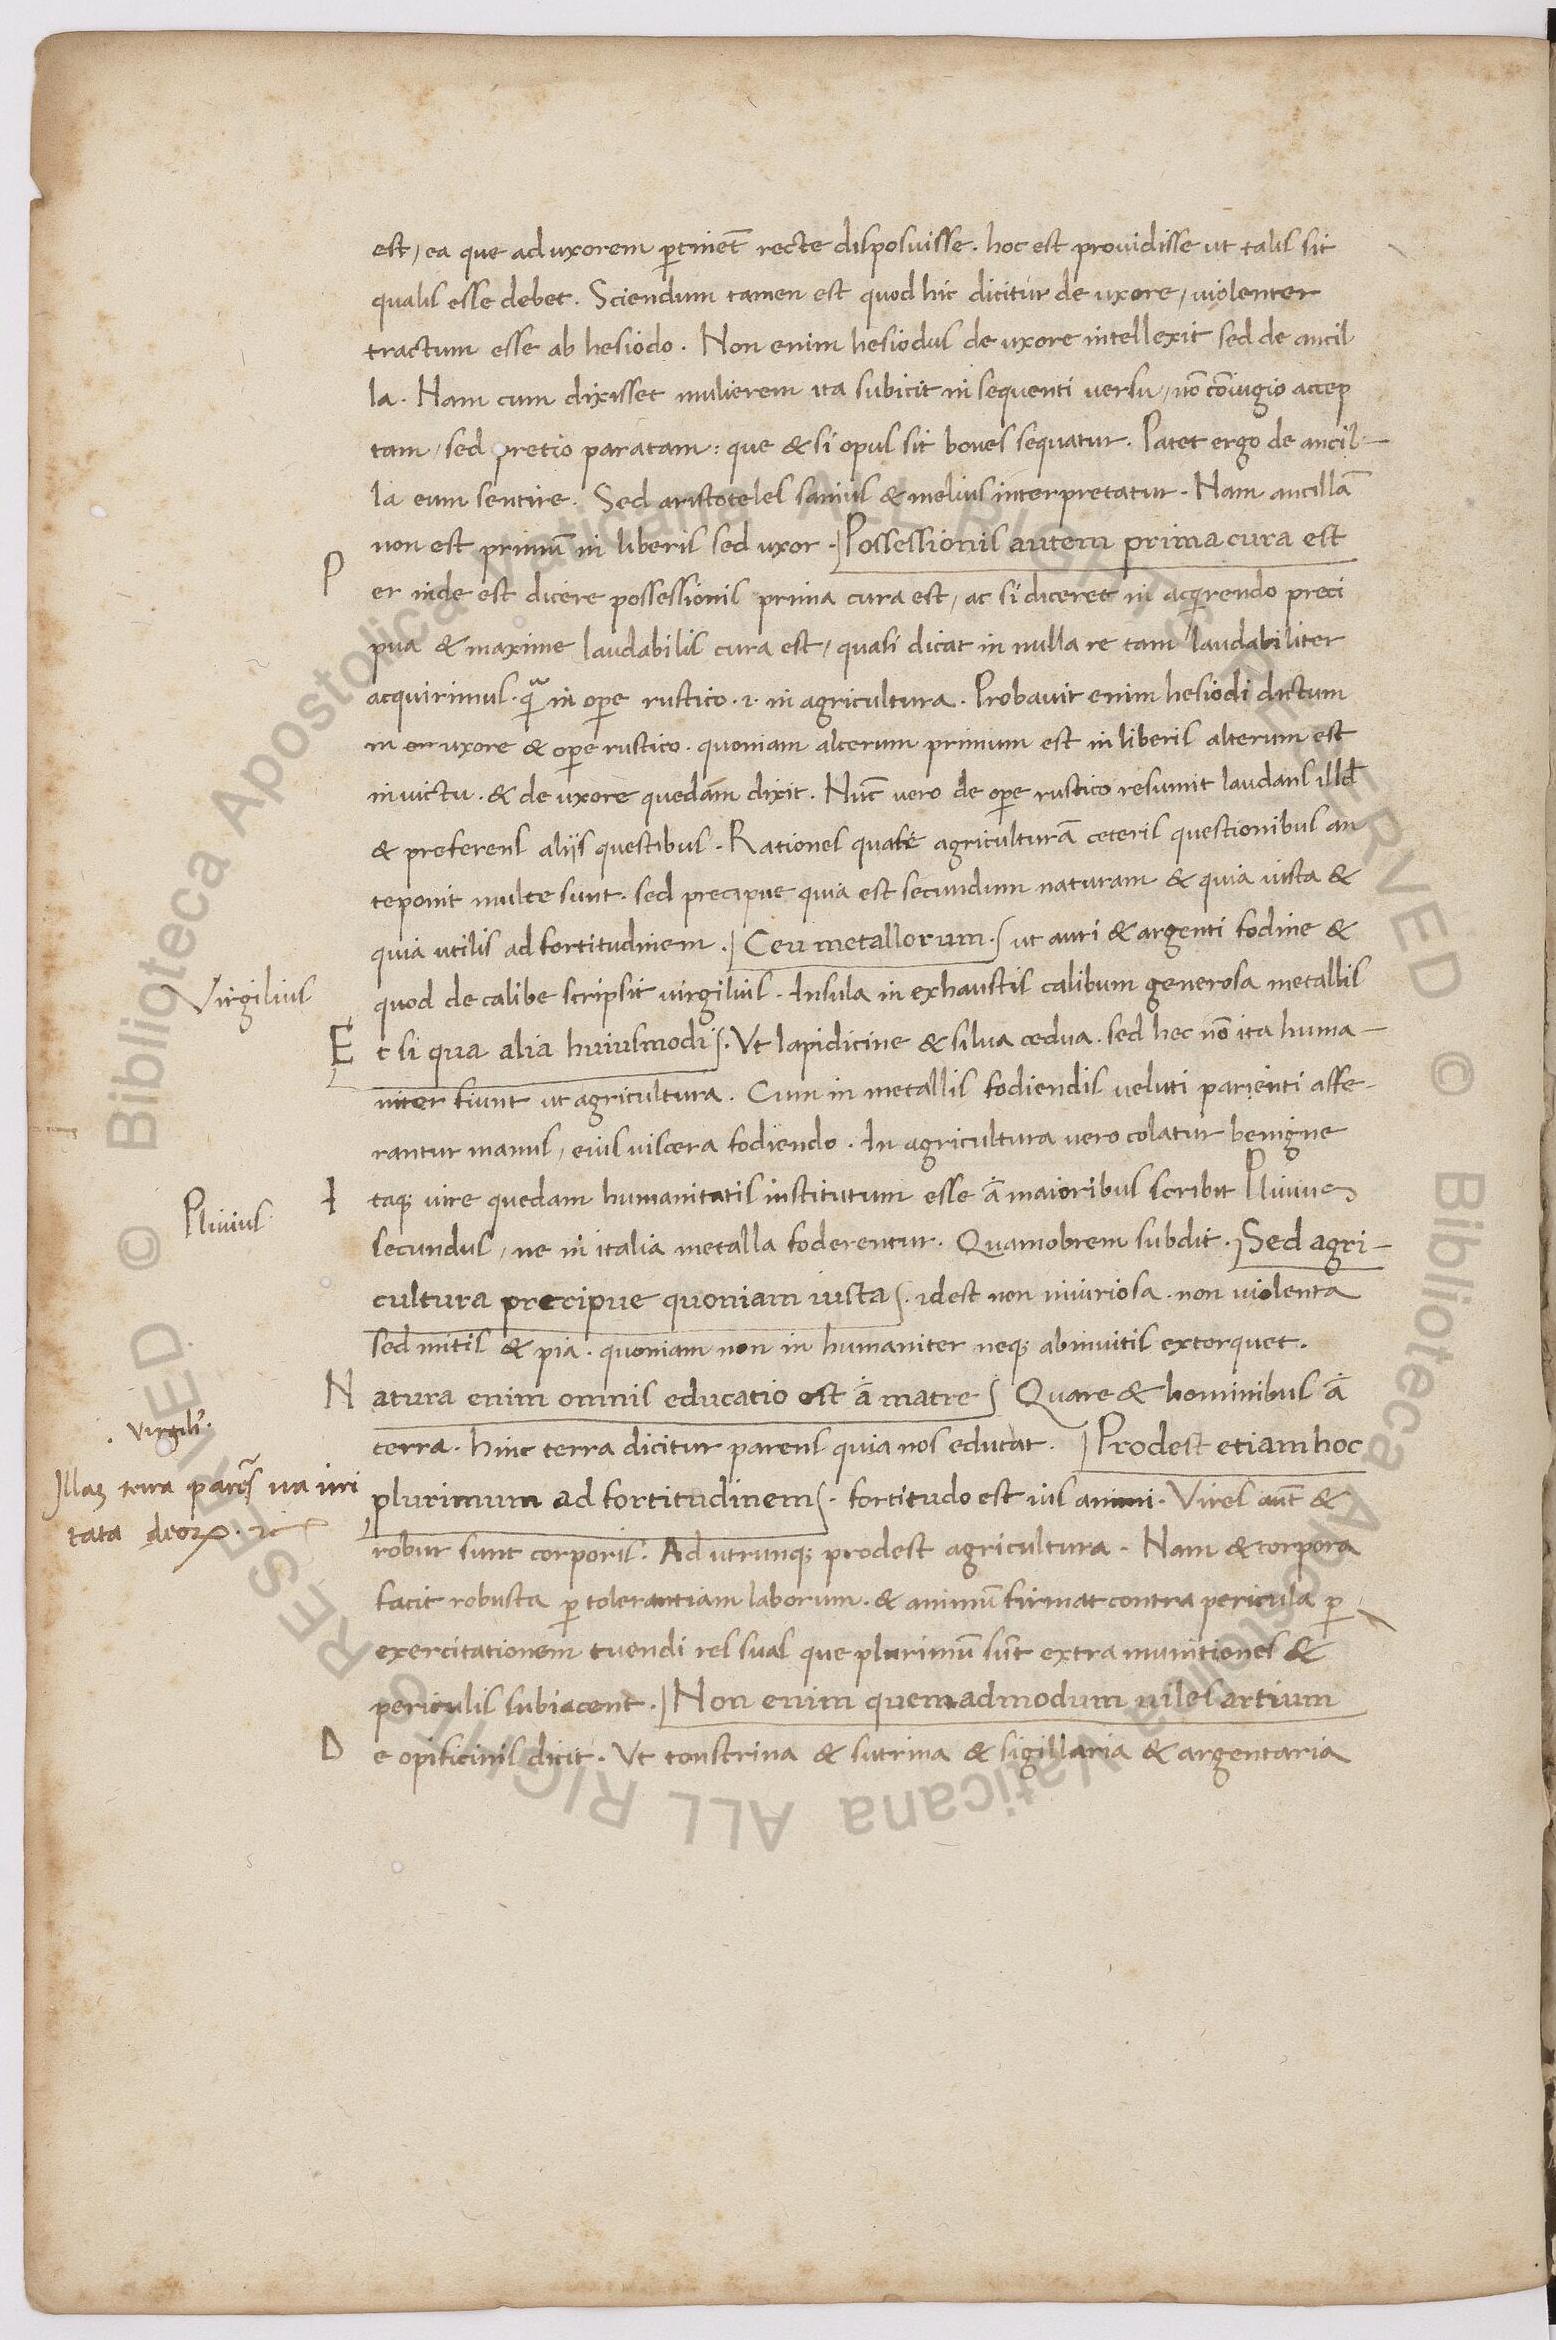 est, ea que ad uxorem ꝑtinēt recte disposuisse. hoc est prouidisse ut talis sit
qualis esse debet. Sciendum tamen est quod hic dicitur de uxore, uiolenter
tractum esse ab hesiodo. Non enim hesiodus de uxore intellexit sed de ancil
la. Nam cum dixisset mulierem ita subicit in sequenti uersu, nō cōiugio accep
tam, sed pretio paratam: que & si opus sit boues sequatur. Patet ergo de ancil-
la eum sentire. Sed aristoteles sanius & melius interpretatur. Nam ancillā
non est primū in liberis sed uxor. Possessionis autem prima cura est
P er inde est dicere possessionis prima cura est, ac si diceret in acqrendo preci
pua & maxime laudabilis cura est, quasi dicat in nulla re tam laudabiliter
acquirimus. qͣ in oꝑe rustico .i. in agricultura. Probauit enim hesiodi dictum
in uxore & oꝑe rustico. quoniam alterum primum est in liberis alterum est
in uictu. & de uxore quedam dixit. Nūc uero de oꝑe rustico resumit laudans illđ
& preferens aliis questibus. Rationes quare agriculturā ceteris questionibus an
teponit multe sunt. sed precipue quia est secundum naturam & quia iusta &
quia utilis ad fortitudinem. Ceu metallorum. ut auri & argenti fodine &
Virgilius
quod de calibe scripsit uirgilius. Insula in exhaustis calibum generosa metallis
E t si qua alia huiusmodi. Vt lapidicine & silua cedua. sed hec nō ita huma-
niter fiunt ut agricultura. Cum in metallis fodiendis ueluti parienti affe-
rantur manus, eius uiscera fodiendo. In agricultura uero colatur benigne
I taqꝫ uire quedam humanitatis institutum esse á maioribus scribit Plinius
Plinius
secundus, ne in italia metalla foderentur. Quamobrem subdit. Sed agri-
cultura precipue quoniam iusta. idest non iniuriosa. non uiolenta
sed mitis & pia. quoniam non in humaniter neqꝫ ab inuitis extorquet.
N atura enim omnis educatio est á matre Quare & hominibus á
terra. hinc terra dicitur parens quia nos educat. Prodest etiam hoc
. virgili⁹.
Illaꝫ terra parēs ira irri
tata deoꝝ. ⁊c
plurimum ad fortitudinem. fortitudo est uis animi. Vires aūt &
robur sunt corporis. Ad utrunqꝫ prodest agricultura. Nam & corpora
facit robusta ꝑ tolerantiam laborum. & animū firmat contra pericula ꝑ
exercitationem tuendi res suas que plurimū sūt extra munitiones &
periculis subiacent. Non enim quemadmodum uiles artium
D e opificinis dicit. Vt tonstrina & sutrina & sigillaria & argentaria
© Biblioteca Apostolica Vaticana ALL RIGHTS RESERVED © Biblioteca Apostolica Vaticana ALL RIGHTS RESERVED